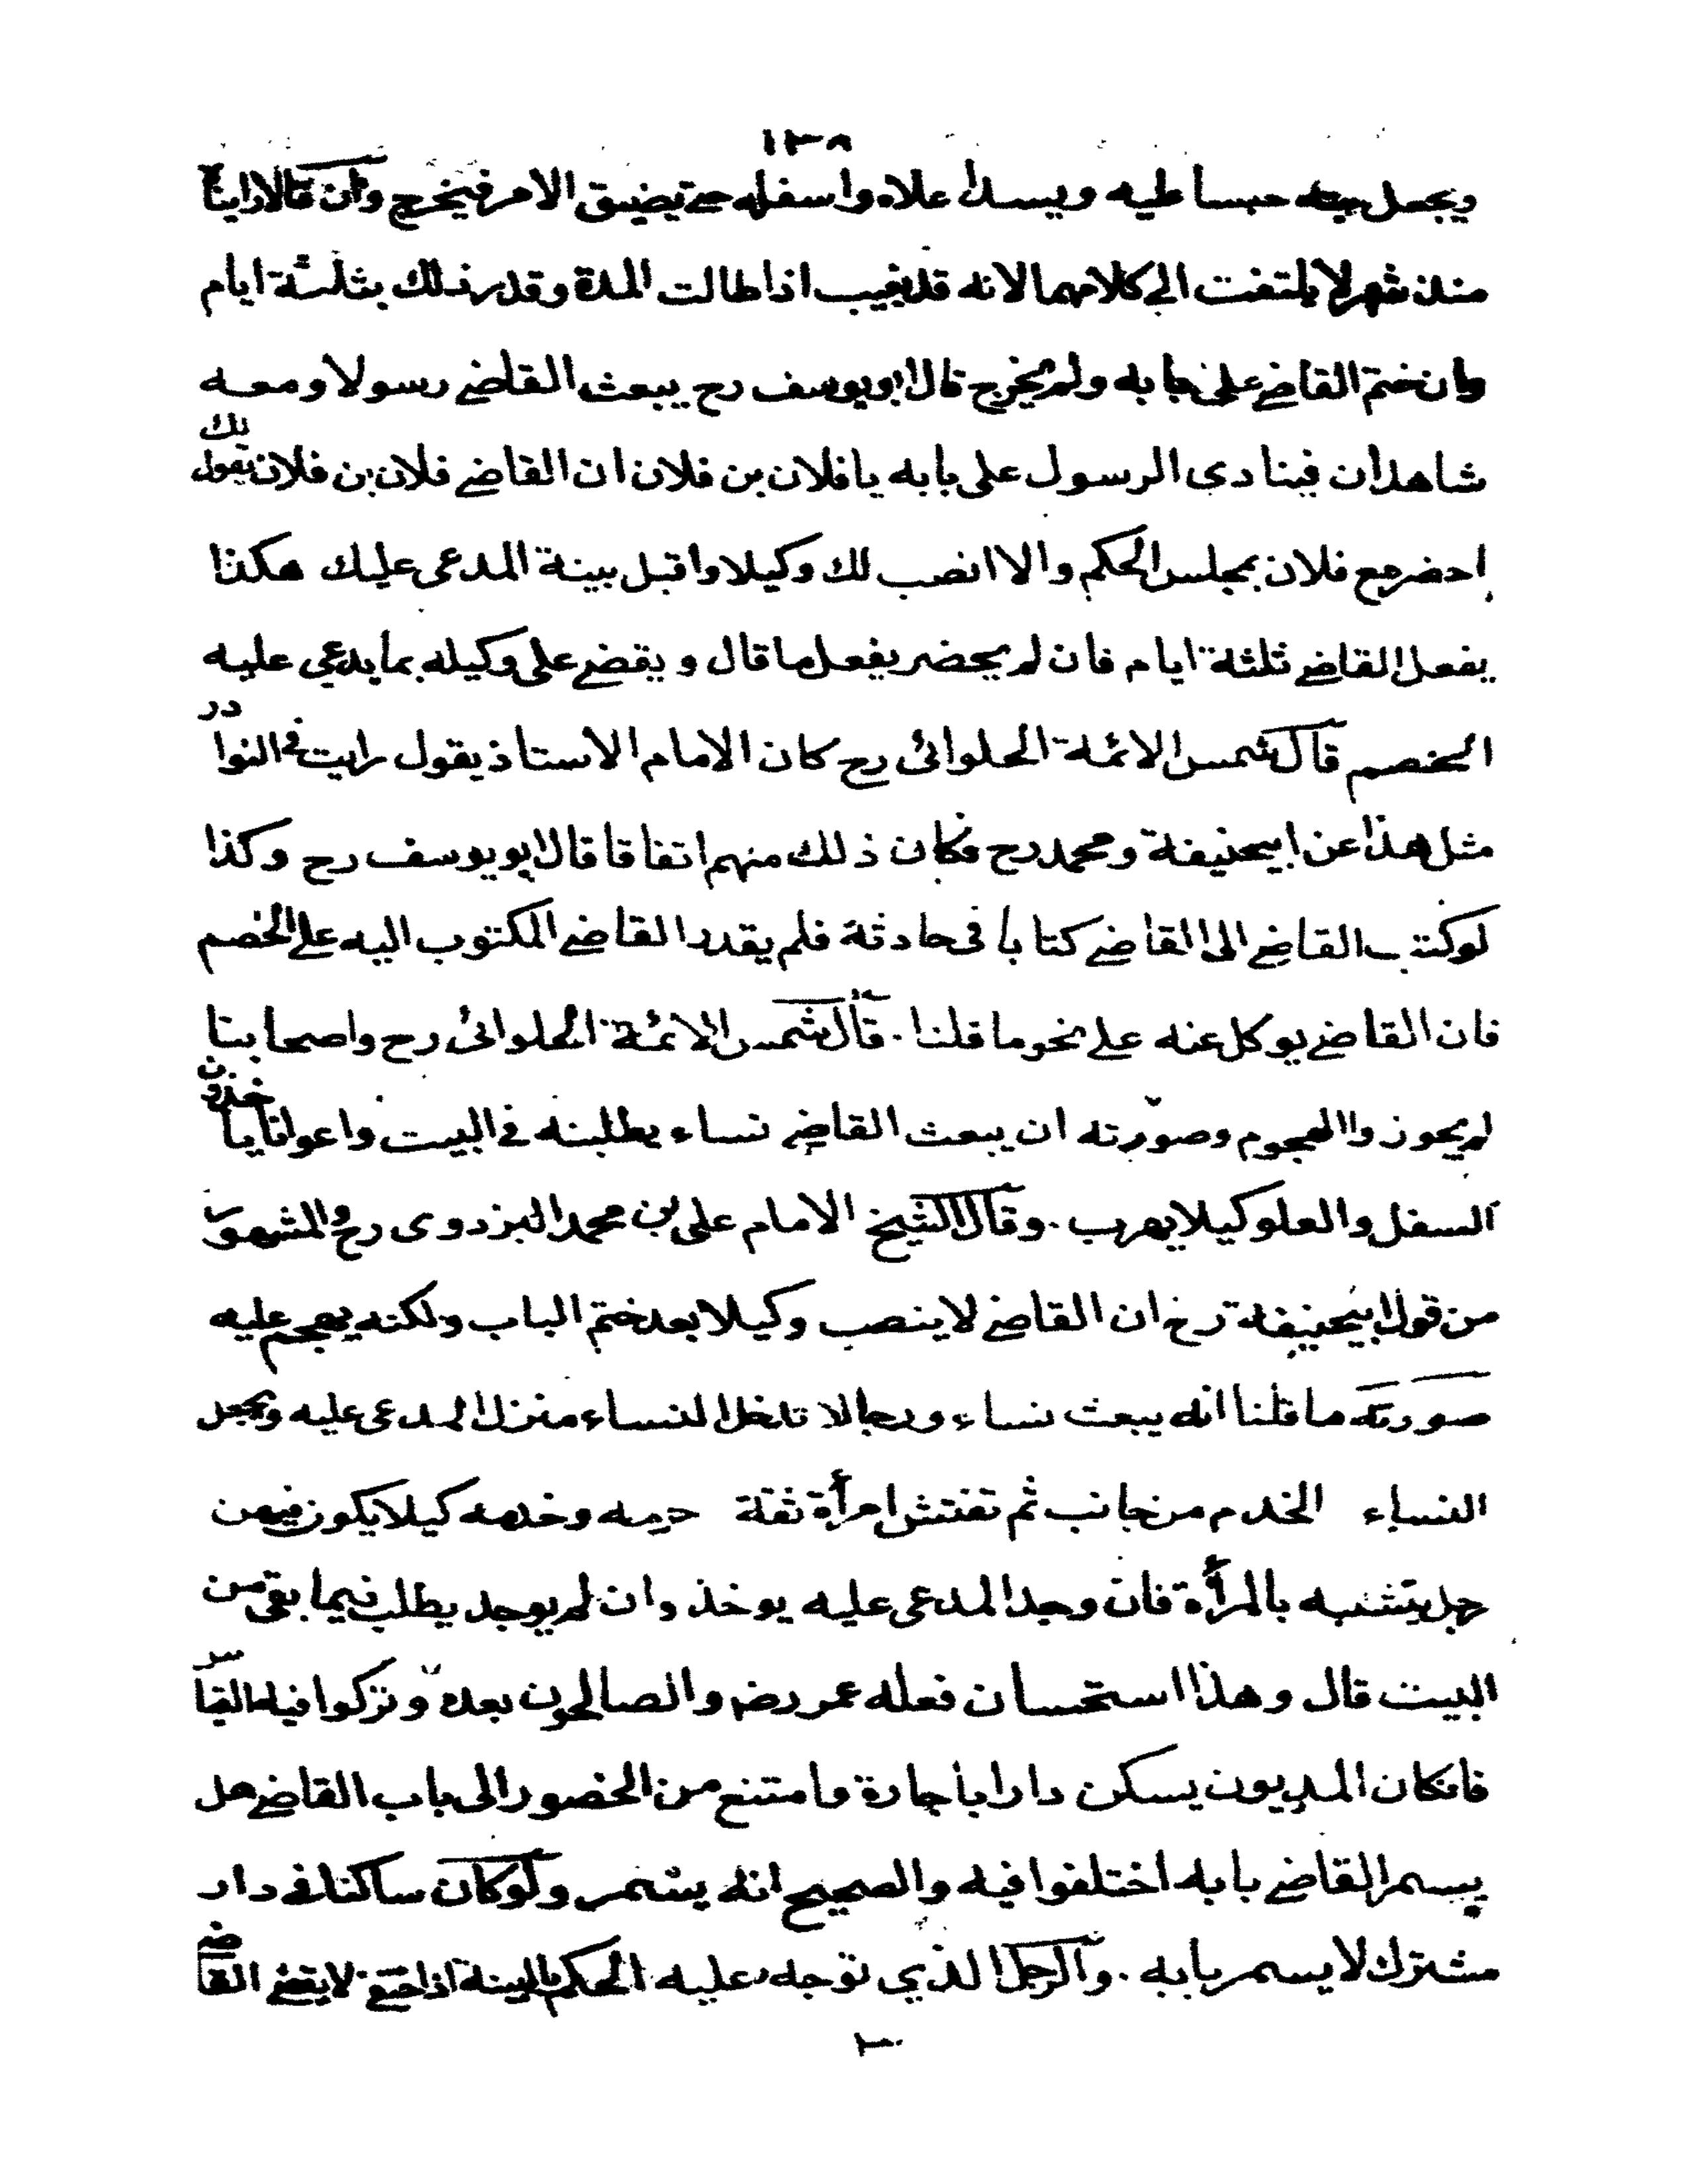 ١٣٨
ويجعل بيته حبسا عليه ويسد اعلاه واسفله حتے يضيق الامر فيخرج وان قالا رايناه
منذ شهر لا يلتفت الى كلامهما لانه قد يغيب اذا طالت المدة وقدر ذلك بثلثة ايام
وان ختم القاضے على بابه ولم يخرج قال ابو يوسف رح يبعث القاضے رسولا ومعه
شاهدان فينادى الرسول على بابه يا فلان بن فلان ان القاضے فلان بن فلان يقول لك
احضر مع فلان بمجلس الحكم والا انصب لك وكيلا واقبل بينة المدعى عليك هكذا
يفعل القاضے ثلثة ايام فان لم يحضر يفعل ما قال و يقضے على وكيله بما يدعى عليه
الخصم قال شمس الائمة الحلوائى رح كان الامام الاستاذ يقول رايت فى النوادر
مثل هذا عن ابيحنيفة ومحمد رح فكان ذلك منهم اتفاقا قال ابو يوسف رح وكذا
لو كتب القاضے الى القاضے كتابا فى حادثة فلم يقدر القاضے المكتوب اليه على الخصم
فان القاضے يوكل عنه على نحو ما قلنا . قال شمس الائمة الحلوائى رح واصحابنا
لم يجوزوا الهجوم وصورته ان يبعث القاضے نساء يطلبنه فى البيت واعوانا ياخذون
السفل والعلو كيلا يهرب . وقال الشيخ الامام على بن محمد البزدوى رح والمشهور
من قول ابيحنيفة رح ان القاضے لا ينصب وكيلا بعد ختم الباب ولكنه يهجم عليه
صورته ما قلنا انه يبعث نساء ورجالا تدخل النساء منزل المدعى عليه ويجعل
النساء الخدم من جانب ثم تفتش امرأة ثقة حرمه وخدمه كيلا يكون فيهن
رجل يتشبه بالمرأة فان وجد المدعى عليه يوخذ وان لم يوجد يطلب فيما بقى من
البيت قال وهذا استحسان فعله عمر رضہ والصالحون بعده وتركوا فيه القياس
فانكان المديون يسكن دارا باجارة وامتنع من الحضور الى باب القاضے هل
يسمر القاضے بابه اختلفوا فيه والصحيح انه يسمر ولو كان ساكنا فى دار
مشترك لا يسمر بابه . والرجل الذى توجه عليه الحكم بالبينة اذا اختفى لا يقضے القاضے